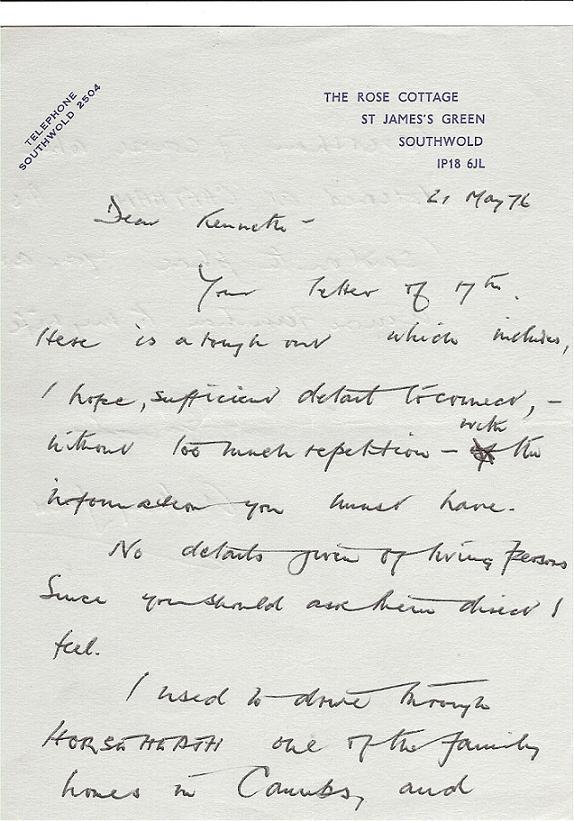 TELEPHONE
SOUTHWOLD 2504
THE ROSE COTTAGE
ST JAMES'S GREEN
SOUTHWOLD
IP18 6JL
21 May 76
Dear Kenneth –
Your letter of 17th.
Here is a rough out which includes,
I hope, sufficient detail to connect, –
with
without too much repetition – the
information you must have.
No details given of living persons
since you should ask them direct I
feel.
I used to drive through
HORSEHEATH one of the family
homes in Cambs, and